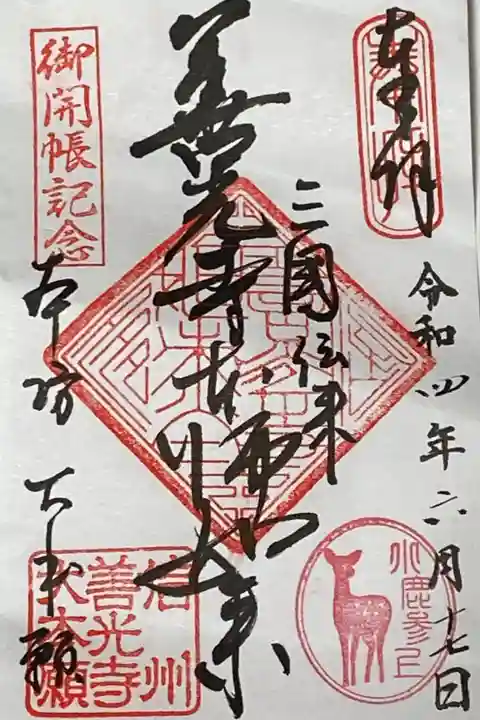 奉拝
令和四年六月十七日
三國伝来
善光寺 如来
御開帳記念
本坊 大本願
信州
善光寺
大本願
小鹿参上